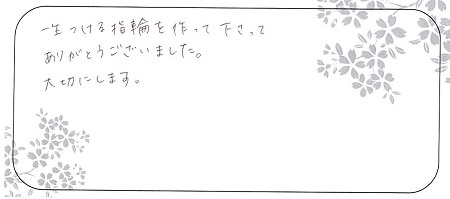 一生つける指輪を作って下さって
ありがとうございました。
大切にします。